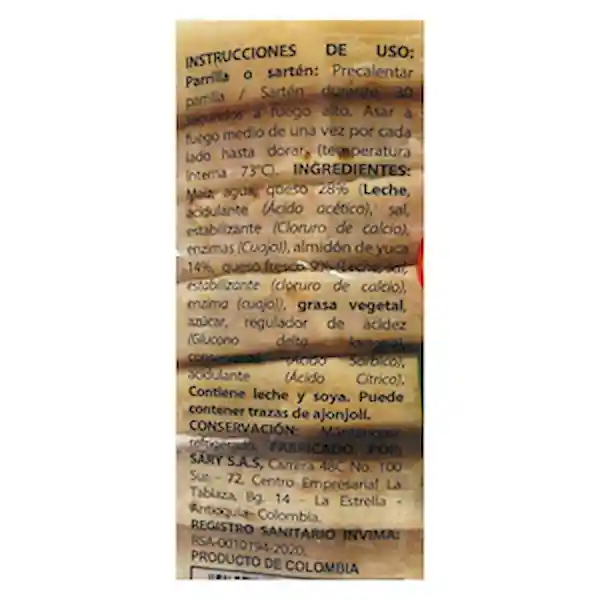 INSTRUCCIONES DE USO:
Parrilla o sartén: Precalentar
parrilla / Sartén durante 30
segundos a fuego alto. Asar a
fuego medio de una vez por cada
lado hasta dorar, (temperatura
Interna 73°C). INGREDIENTES:
Maíz, agua, queso 28% (Leche,
acidulante (Ácido acético), sal,
estabilizante (Cloruro de calcio),
enzimas (Cuajo)), almidón de yuca
14%, queso fresco 9% (Leche, sal,
estabilizante (cloruro de calcio),
enzima (cuajo)), grasa vegetal,
azúcar, regulador de acidez
(Glucono delta
(Ácido Sórbico),
acidulante (Ácido Cítrico).
Contiene leche y soya. Puede
contener trazas de ajonjolí.
CONSERVACIÓN: Manténgase
refrigerado. FABRICADO POR:
SARY S.A.S, Carrera 48C No. 100
Sur - 72, Centro Empresarial La
Tablaza, Bg. 14 - La Estrella -
Antioquia- Colombia.
REGISTRO SANITARIO INVIMA:
RSA-0010194-2020.
PRODUCTO DE COLOMBIA